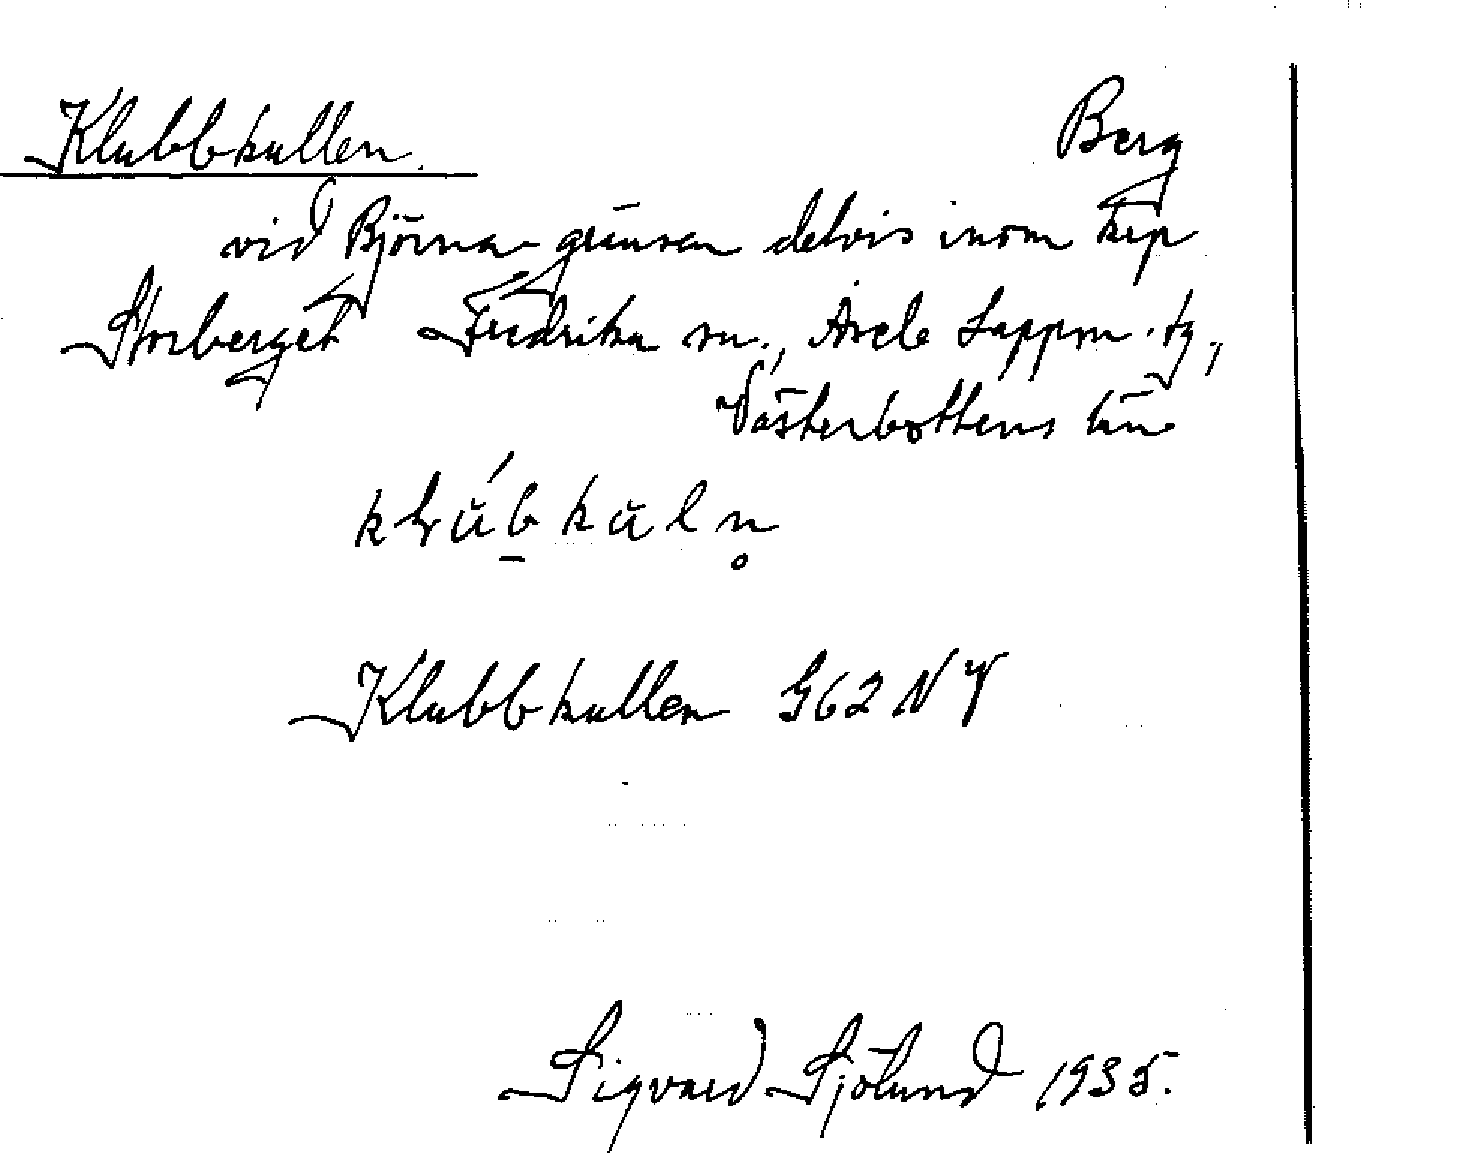 Klubbkullen. Berg
vid Björna-gränsen delvis inom kzp
Storberget Fredrika sn., Åsele Lappm. tg,
Västerbottens län
Klubbkullen G62 NV
Sigvard Sjölund 1935.